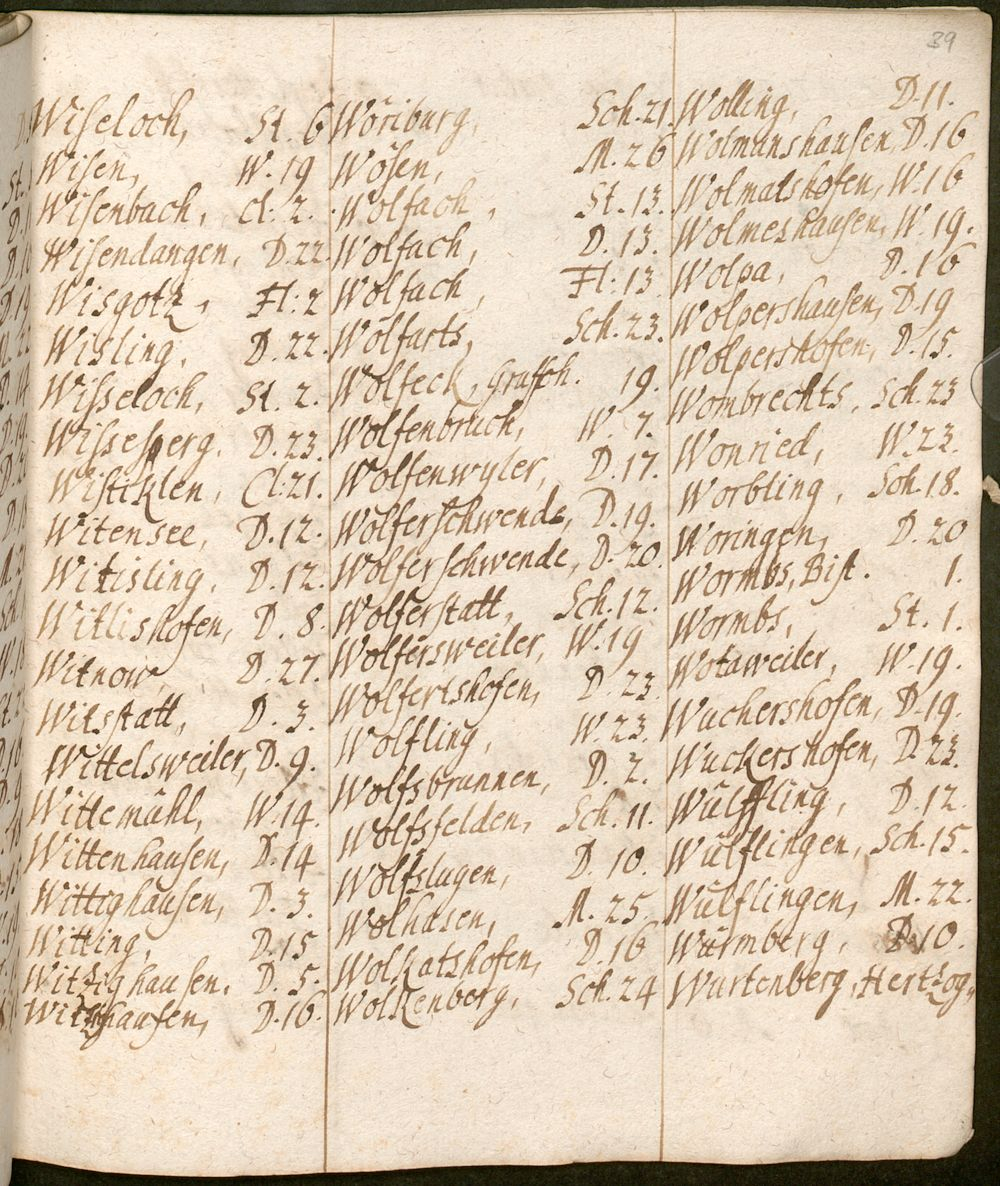 39
Wiseloch, St. 6
Wisen, W. 19
Wisenbach, Cl. 2.
Wisendangen, D. 22.
Wisgotz, Fl: 2
Wisling, D. 22.
Wisseloch, St. 2.
Wissesperg, D. 23.
Wistiklen, Cl: 21.
Witensee, D. 12.
Witisling, D. 12.
Witlishofen, D. 8.
Witnow, D. 27.
Witsstatt, D. 3.
Wittelsweiler, D. 9.
Wittemühl, W. 14.
Wittenhausen, D. 14
Wittighausen, D. 3.
Witting, D. 15
Witzighausen, D. 5.
D. 16.
Wöriburg, Sch. 21.
Wösen, M. 26
Wolfach, St. 13.
Wolfach, D. 13.
Wolfach, Fl: 13.
Wolfarts, Sch. 23.
Wolfeck, Graffsch. 19.
Wolfenbruch, W. 7.
Wolfenwyler, D. 17.
Wolferschwende, D. 19.
Wolferschwende, D. 20.
Wolferstatt, Sch. 12.
Wolfersweiler, W. 19
Wolfertshofen, D. 23
Wolfling, W. 23.
Wolfsbrunnen, D. 2.
Wolfsfelden, Sch. 11.
Wolfslugen, D. 10.
Wolhusen, M. 25.
Wolkatshofen, D. 16
Wolkenberg, Sch. 24
Wolling, D. 11.
Wolmanshausen, D. 16
Wolmatshofen, W. 16
Wolmeshausen, W. 19.
Wolpa, D. 16
Wolpershausen, D. 19
Wolpershofen, D. 15.
Wombrechts, Sch. 23
Wonried, W. 23.
Worbling, Sch. 18.
Woringen, D. 20
Wormbs, Bist. 1.
Wormbs, St. 1.
Wotaweiler, W. 19.
Wuchershofen, D. 19.
Wuckershofen, D. 23.
Wülffling, D. 12.
Wülflingen, Sch. 15.
Wülflingen, M. 22.
Würmberg, D. 10.
Wurtenberg, Hertzog.